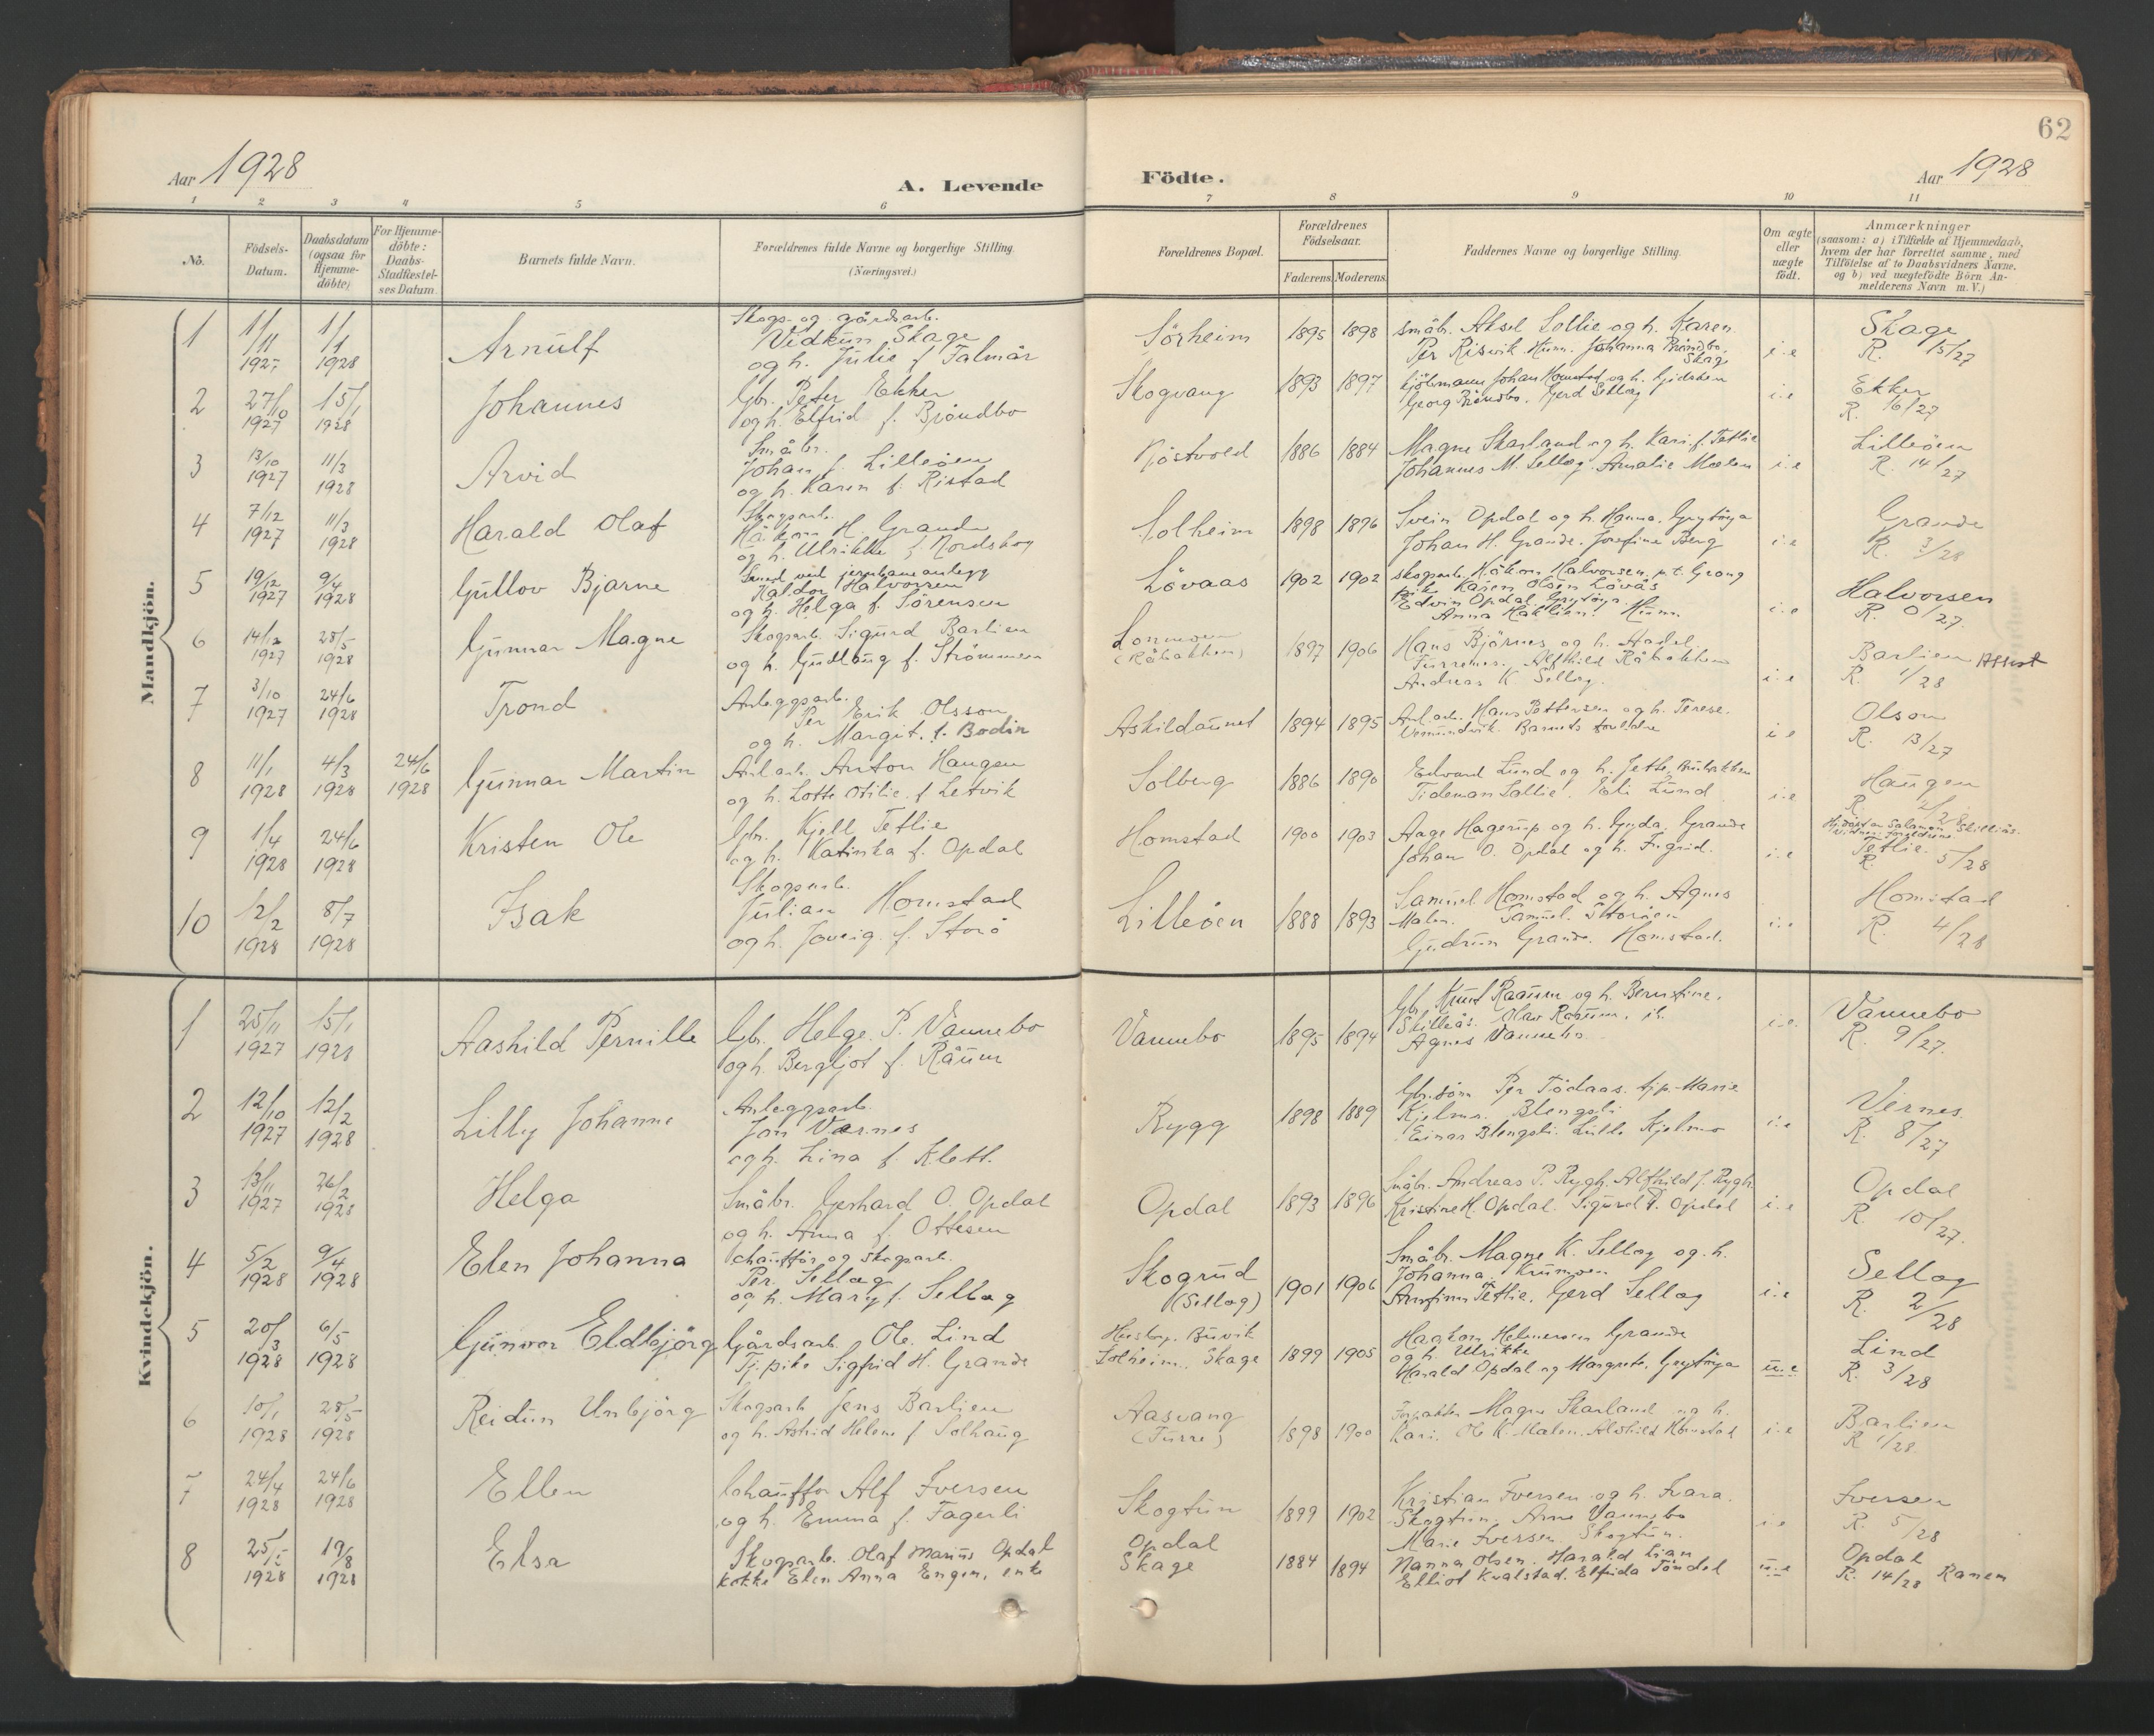 62
Aar 1928
A. Levende Födte.
Aar 1928
1 2 3 4 5 6 7 8 9 10 11
No.
Födsels-Datum.
Daabsdatum (ogsaa for Hjemme-döbte)
For Hjemme-döbte: Daabs-Stadfæstel-ses Datum
Barnets fulde Navn.
Forældrenes fulde Navne og borgerlige Stilling. (Næringsvei.)
Forældrenes Bopæl.
Forældrenes Födselsaar.
Faderens. Moderens.
Faddernes Navne og borgerlige Stilling.
Om ægte eller uægte födt.
Anmærkninger
(saasom: a) i Tilfælde af Hjemmedaab,
hvem der har forrettet samme, med
Tilföielse af to Daabsvidners Navne,
og b) ved uægtefödte Börn An-
melderens Navn m. V.)
Mandkjön.
1 1/11 1927 1/1 1928 Arnulf
Skogs- og gårdsarb.
Vidkun Skage
og h. Julie f. Falmår
Sörheim 1895 1898
småb. Aksel Sollie og h. Karen
Per Risvik Hunn. Johanna Bröndbo, Skage
i.e Skage R. 15/27
2 27/10 1927 15/1 1928 Johannes
Gbr. Peter Ekker
og h. Elfrid f. Bröndbo
Skogvang 1893 1897
Kjöbmann Johan Homstad og h.
Georg Bröndbo. Gerd Sellæg
i.e Ekker R. 16/27
3 13/10 1927 11/3 1928 Arvid
Småbr.
Johan J. Lilleöen
og h. Karen f. Ristad
1886 1884
Magne Skarland og h. Kari f. Tetlie
Johannes M. Sellæg. Amalie Mælen
i.e Lilleöen R. 14/27
4 7/12 1927 11/3 1928 Harald Olaf
Skogsarb.
Håkon H. Grande
og h. Ulrikke f. Nordskog
Solheim 1898 1896
Svein Opdal og h. Hanna. Grytöya
Johan H. Grande. Josefine Berg
i.e Grande R. 3/28
5 19/12 1927 9/4 1928 Gullov Bjarne
Smed ved jernbaneanlegg
Haldor Halvorsen
og h. Helga f. Sörensen
Lövaas 1902 1902
skogsarb. Håkon Halvorsen, p.t. Grong
Karen Olsen Lövås
Edvin Opdal Grytöya
Anna Haklien. Hunn.
i.e Halvorsen R. 0/27.
6 14/12 1927 28/5 1928 Gunnar Magne
Skogsarb. Sigurd Barlien
og h. Gudlaug f. Strömmen
Lonmoen (Råbakken) 1897 1906
Hans Björnes og h. Aadel
Furrenes. Alfhild Råbakken
Andreas K Sellæg.
i.e Barlien R. 1/28
7 3/10 1927 24/6 1928 Trond
Anleggsarb.
Per Erik Olsson
og h. Margit f. Bodin
Askildaunet 1894 1895
Anl.arb. Hans Pettersen og h. Terese.
Vemundvik. Barnets foreldre
i.e Olson R. 13/27
8 11/1 1928 4/3 1928 24/6 1928 Gunnar Martin
Anl.arb. Anton Haugen
og h. Lotte Otilie f. Letvik
Solberg 1886 1890
Edvard Lund og h. Jette,
Tideman Sollie. Eli Lund
i.e Haugen R.
9 1/4 1928 24/6 1928 Kristen Ole
Gbr. Kjell Tetlie
og h. Katinka f. Opdal
Homstad 1900 1903
Aage Hagerup og h. Gyda. Grande
Johan O. Opdal og h. Ingrid.
i.e Tetlie. R. 5/28
10 12/2 1928 8/7 1928 Isak
Skogsarb.
Julian Homstad
og h. Joveig f. Storö
Lilleöen 1888 1893
Samuel Homstad og h. Agnes
Malen. Samuel Storöen
Gudrun Grande. Homstad.
i.e Homstad R. 4/28
Kvindekjön.
1 25/11 1927 15/1 1928 Aashild Pernille
Gbr. Helge P. Vannebo
og h. Bergljot f. Råum
Vannebo 1895 1894
Gbr. Knut Raaum og h. Berntine.
Skilleås. Olav Raaum, ib.
Agnes Vannebo
i.e. Vannebo R. 9/27.
2 12/10 1927 12/2 1928 Lilly Johanne
Anleggsarb.
Jon Værnes
og h. Lina f. Klett.
Rygg 1898 1889
Gbr.sönn Per Tödaas. tjp. Marie
Kjelmo. Blengsli
Einar Blengsli. Lulla Kjelmo
i.e Vernes. R. 8/27
3 13/11 1927 26/2 1928 Helga
Småbr. Gerhard O. Opdal
og h. Anna f. Ottesen
Opdal 1893 1896
Småbr. Andreas P. Rygh. Alfhild J. Rygh.
Kristine H. Opdal. Sigurd P. Opdal
i.e Opdal R. 10/27.
4 5/2 1928 9/4 1928 Elen Johanna
Chaufför og skogsarb.
Per. Sellæg
og h. Mary f. Sellæg
Skogrud (Sellæg) 1901 1906
Småbr. Magne K. Sellæg og h.
Johanna. Krumoen
Arnfinn Tetlie. Gerd Sellæg
i.e Sellæg R. 2/28
5 20/3 1928 6/5 1928 Gunvor Eldbjörg
Gårdsarb. Ole Lind
Tj.pike Sigfrid H. Grande
Husby. Buvik
Solheim. Skage 1899 1905
Haakon Helmersen Grande
og h. Ulrikke
Harald Opdal og Margrete. Grytöya
u.e Lind R. 3/28
6 10/1 1928 28/5 1928 Reidun Unbjörg
Skogsarb Jens Barlien
og h. Astrid Helene f Solhaug
Aasvang (Furre) 1898 1900
Forpakter Magne Skarland og h.
Kari. Ole K. Malen. Alvhild Homstad
i.e Barlien R 1/28.
7 24/4 1928 24/6 1928 Ellen
Chauffør Alf Iversen
og h. Emma f. Fagerli
Skogtun 1899 1902
Kristian Iversen og h. Ivara.
Skogtun. Arne Vannebo
Marie Iversen Skogtun.
i.e Iversen R. 5/28
8 25/5 1928 19/8 1928 Elsa
Skogsarb. Olaf Marius Opdal
kokke Elen Anna Engen, enke
Opdal
Skage 1884 1894
Nanna Olsen. Harald Lian
Elliot Kvalstad. Elfrida Töndel
u.e Opdal R. 14/28 Ranem